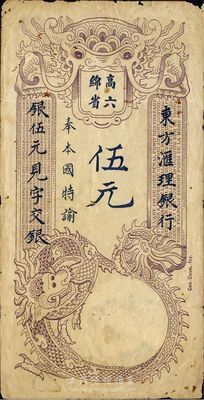 高
六
綿省
東方滙理銀行
伍元
奉本國特諭
銀伍元見字交銀
Geo. Duval, fec.